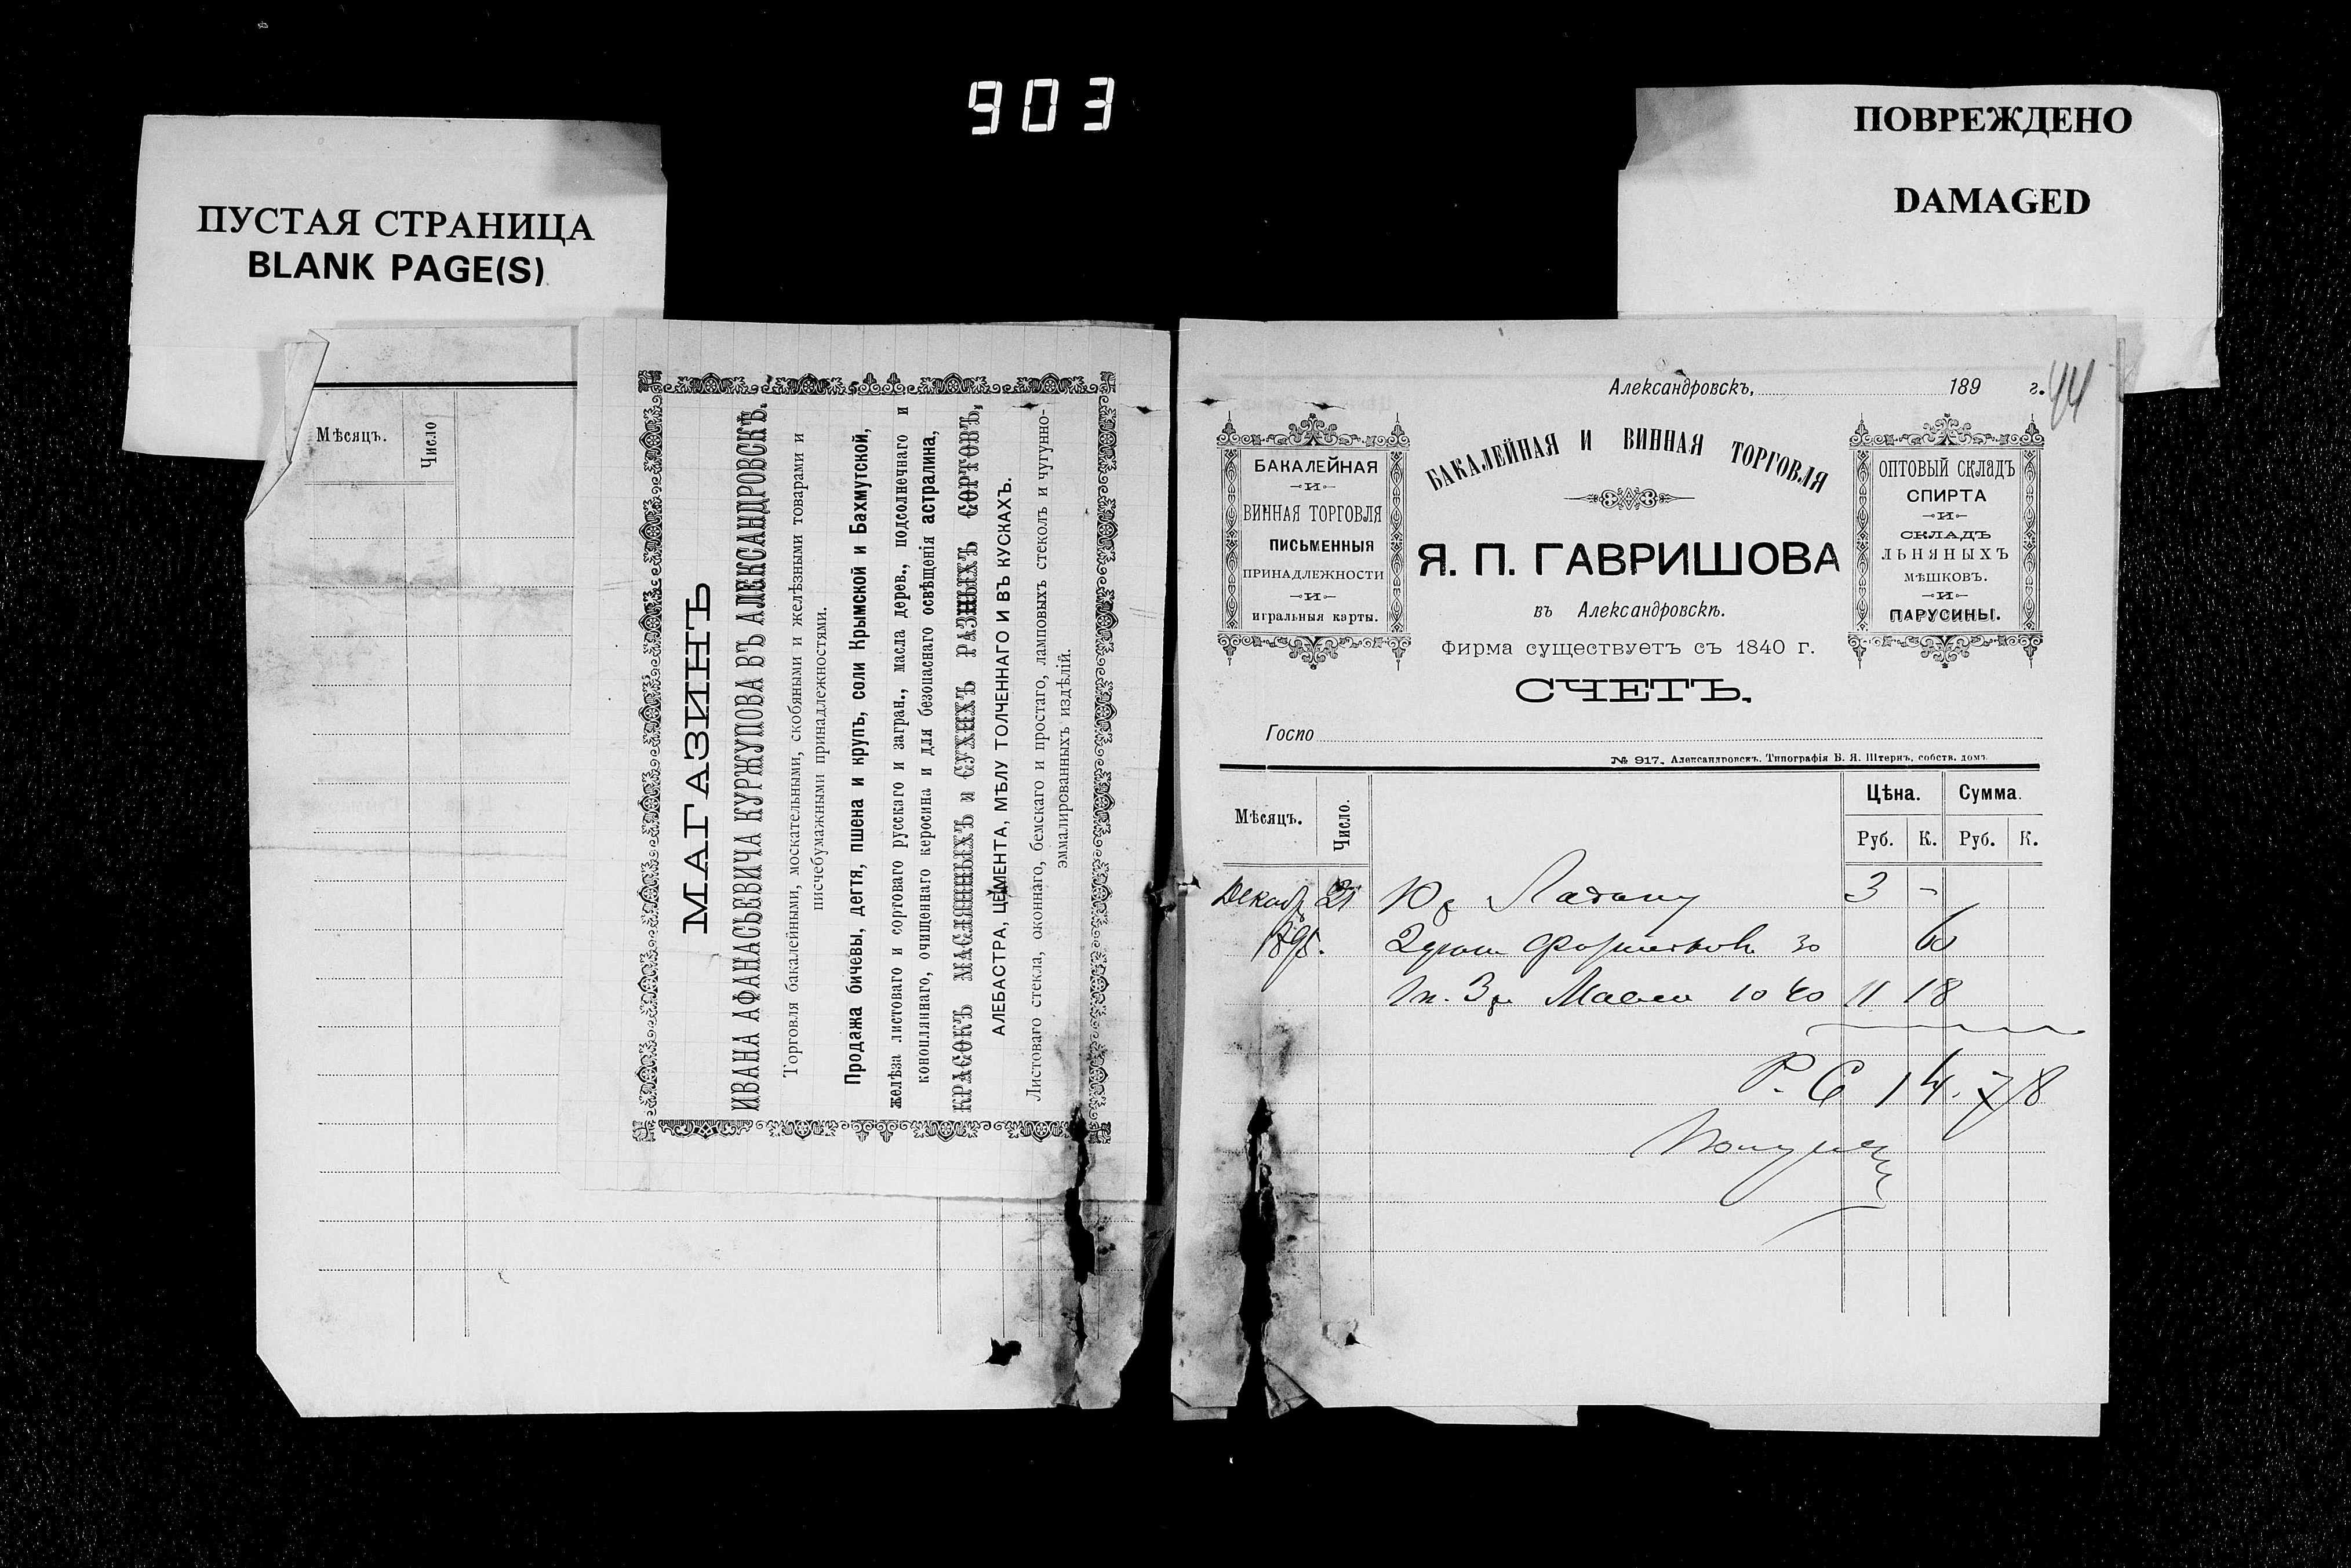 903
ПУСТАЯ СТРАНИЦА
BLANK PAGE(S)
ПОВРЕЖДЕНО
DAMAGED
Мѣсяцъ.
Число
МАГАЗИНЪ
ИВАНА АФАНАСЬЕВИЧА КУРЖУПОВА ВЪ АЛЕКСАНДРОВСКѢ.
Торговля бакалейными, москательными, скобяными и желѣзными товарами и
писчебумажными принадлежностями.
Продажа бичевы, дегтя, пшена и крупъ, соли Крымской и Бахмутской,
желѣза листоваго и сортоваго русскаго и загран., масла дерев., подсолнечнаго и
коноплянаго, очищеннаго керосина и для безопаснаго освѣщенія астралина,
КРАСОКЪ МАСЛЯННЫХЪ и СУХИХЪ РАЗНЫХЪ СОРТОВЪ,
АЛЕБАСТРА, ЦЕМЕНТА, МѢЛУ ТОЛЧЕННАГО И ВЪ КУСКАХЪ.
Листоваго стекла, оконнаго, бемскаго и простаго, ламповыхъ стеколъ и чугунно-
эммалированныхъ издѣлій.
Александровскъ, 189 г.
44
БАКАЛЕЙНАЯ
И
ВИННАЯ ТОРГОВЛЯ
ПИСЬМЕННЫЯ
ПРИНАДЛЕЖНОСТИ
И
игральныя карты.
БАКАЛЕЙНАЯ И ВИННАЯ ТОРГОВЛЯ
Я. П. ГАВРИШОВА
въ Александровскѣ.
Фирма существуетъ съ 1840 г.
ОПТОВЫЙ СКЛАДЪ
СПИРТА
И
СКЛАДЪ
ЛЬНЯНЫХЪ
МѢШКОВЪ.
И
ПАРУСИНЫ.
СЧЕТЪ.
Госпо
№ 917. Александровскъ. Типографія Б. Я. Штернъ, собств. домъ.
Мѣсяцъ.
Число.
Цѣна. Сумма.
Руб. К. Руб. К.
Декабр 21 10 Ладану 3 -
1895. 30 60
Масла 10 40 11 18
Р. С 14. 78